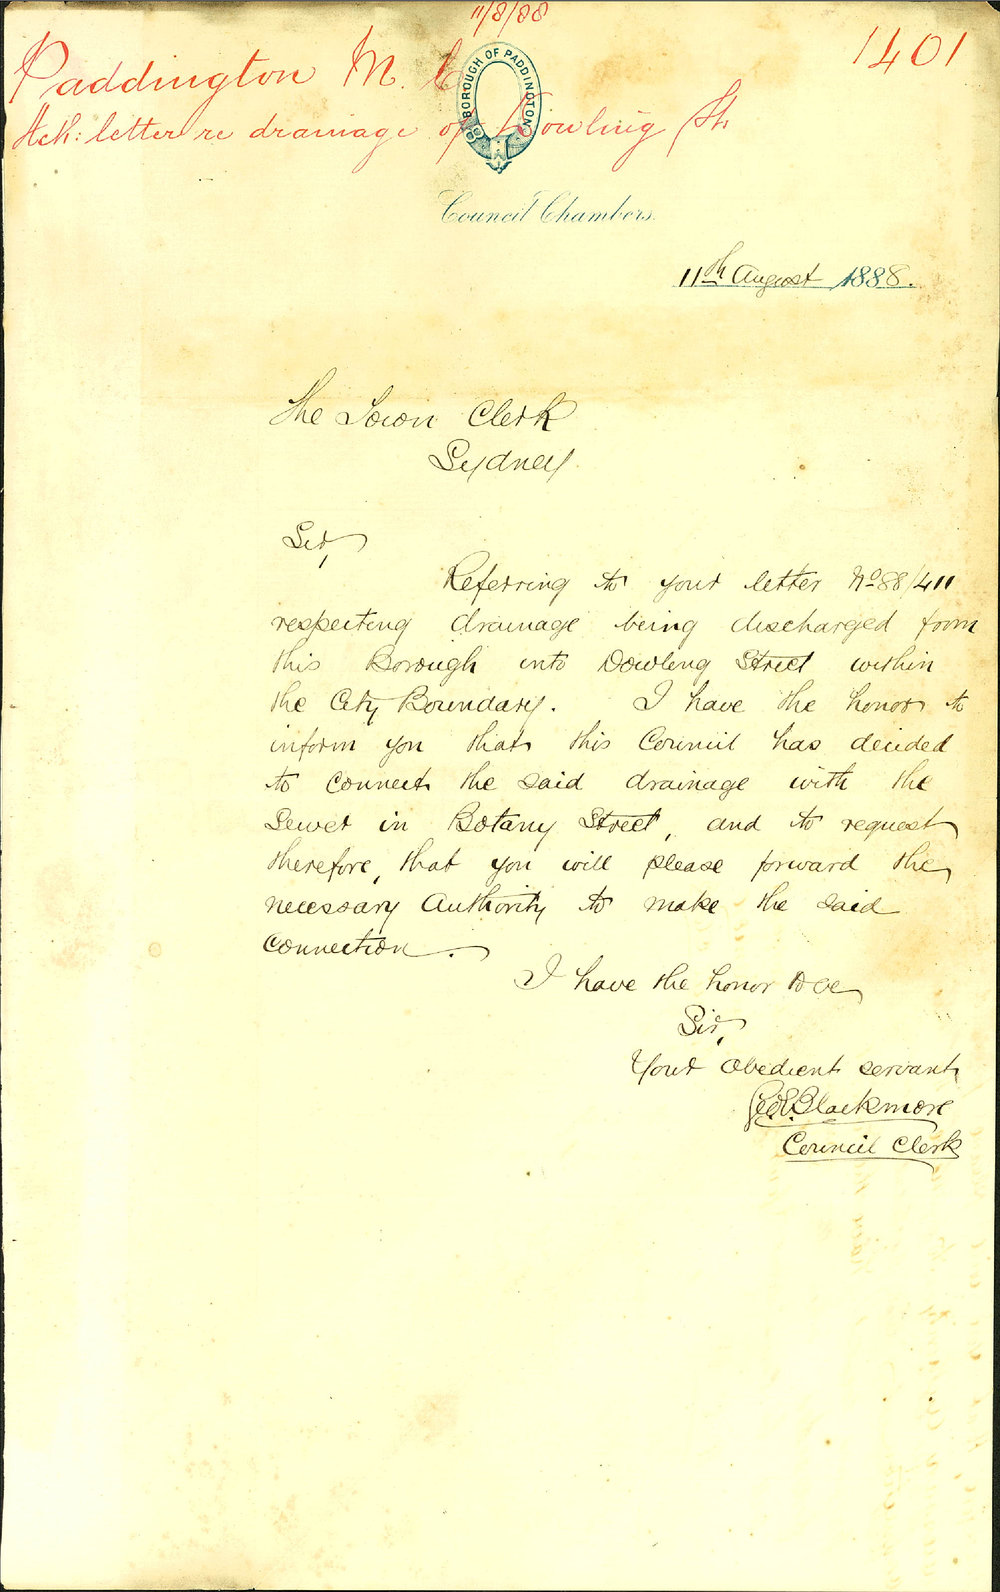 11/8/88
1401
Paddington M. C.
Ack: letter re drainage of Dowling St.
BOROUGH OF PADDINGTON
Council Chambers.
11th August 1888.
The Town Clerk
Sydney.
Sir,
Referring to your letter No 88/411
respecting drainage being discharged from
this Borough into Dowling Street within
the City Boundary. I have the honor to
inform you that this Council has decided
to connect the said drainage with the
Sewer in Botany Street, and to request
therefore, that you will please forward the
necessary Authority to make the said
Connection.
I have the honor to be
Sir,
Your obedient servant
Geo E. Blackmore
Council Clerk